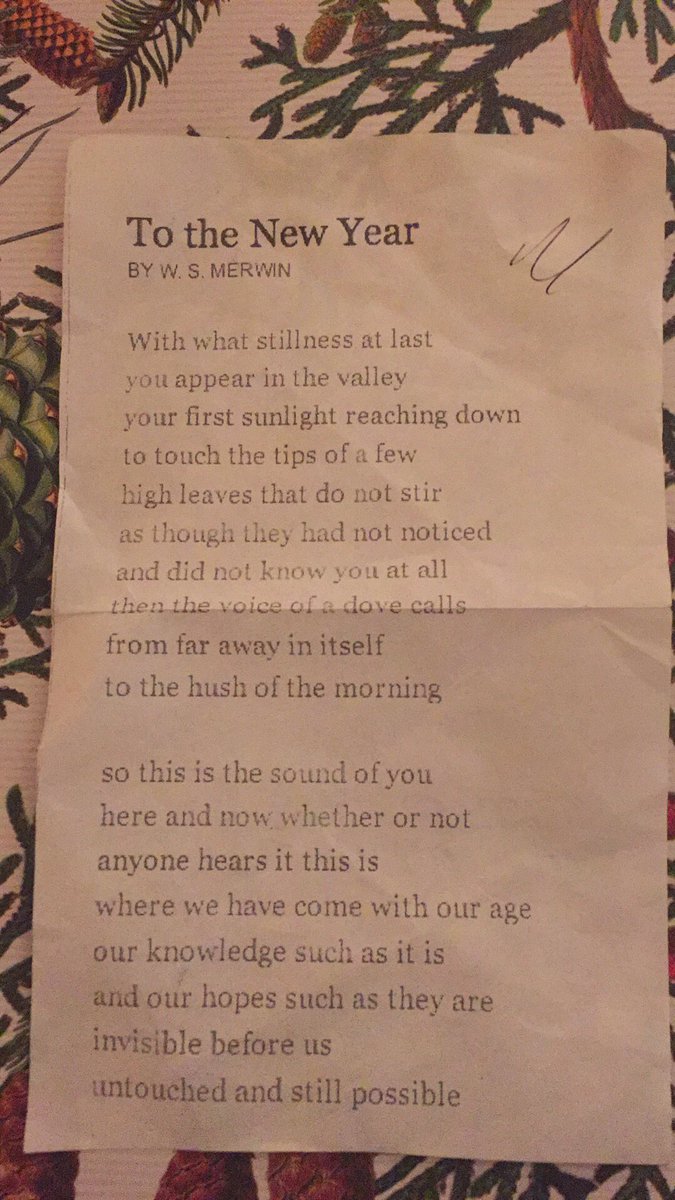 To the New Year
BY W. S. MERWIN
With what stillness at last
you appear in the valley
your first sunlight reaching down
to touch the tips of a few
high leaves that do not stir
as though they had not noticed
and did not know you at all
then the voice of a dove calls
from far away in itself
to the hush of the morning
so this is the sound of you
here and now whether or not
anyone hears it this is
where we have come with our age
our knowledge such as it is
and our hopes such as they are
invisible before us
untouched and still possible